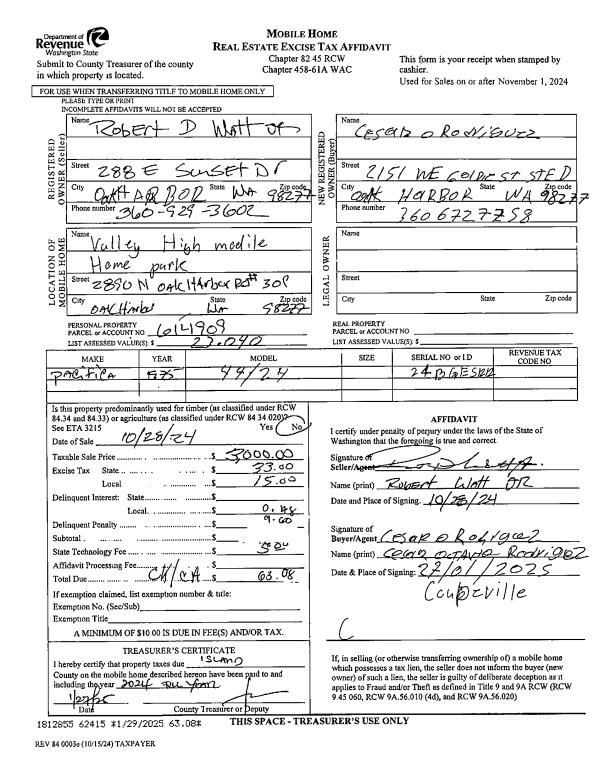 Department of
Revenue
Washington State
Submit to County Treasurer of the county
in which property is located.
MOBILE HOME
REAL ESTATE EXCISE TAX AFFIDAVIT
Chapter 82 45 RCW
Chapter 458-61A WAC
This form is your receipt when stamped by
cashier.
Used for Sales on or after November 1, 2024
FOR USE WHEN TRANSFERRING TITLE TO MOBILE HOME ONLY
PLEASE TYPE OR PRINT
INCOMPLETE AFFIDAVITS WILL NOT BE ACCEPTED
REGISTERED OWNER (Seller)
Name Robert D Watt JR
Street 288 E Sunset Dr
City OAK HARBOR State WA Zip code 98277
Phone number 360-929-3602
NEW REGISTERED OWNER (Buyer)
Name Cesar O Rodriguez
Street 2151 WE
City OAK HARBOR State WA Zip code 98277
Phone number 360 6727758
LOCATION OF MOBILE HOME
Name Valley High modile
Home park
Street 2890 N OAK Harbor Rd # 30P
City OAK Harbor State WA Zip code 98277
LEGAL OWNER
Name
Street
City State Zip code
PERSONAL PROPERTY
PARCEL or ACCOUNT NO. 6141909
LIST ASSESSED VALUE(S) $ 23,040
REAL PROPERTY
PARCEL or ACCOUNT NO
LIST ASSESSED VALUE(S) $
MAKE YEAR MODEL SIZE SERIAL NO or I D REVENUE TAX CODE NO
PACIFICA 44/24
Is this property predominantly used for timber (as classified under RCW
84.34 and 84.33) or agriculture (as classified under RCW 84 34 020)?
See ETA 3215 Yes No
Date of Sale 10/28/24
Taxable Sale Price $ 3000.00
Excise Tax State $ 33.00
Local $ 15.00
Delinquent Interest: State $
Local $ 0.48
Delinquent Penalty $ 9.60
Subtotal $
State Technology Fee $ 5.00
Affidavit Processing Fee $
Total Due $ 63.08
If exemption claimed, list exemption number & title:
Exemption No. (Sec/Sub)
Exemption Title
A MINIMUM OF $10.00 IS DUE IN FEE(S) AND/OR TAX.
AFFIDAVIT
I certify under penalty of perjury under the laws of the State of
Washington that the foregoing is true and correct
Signature of
Seller/Agent
Name (print) Robert Watt JR
Date and Place of Signing. 10/28/24
Signature of
Buyer/Agent Cesar O Rodriguez
Name (print) Cesar OCTAVIO Rodriguez
Date & Place of Signing: 27/01/2025
Coupeville
TREASURER'S CERTIFICATE
I hereby certify that property taxes due ISLAND
County on the mobile home described hereon have been paid to and
including the year 2024 FULL YEAR
Date County Treasurer or Deputy
If, in selling (or otherwise transferring ownership of) a mobile home
which possesses a tax lien, the seller does not inform the buyer (new
owner) of such a lien, the seller is guilty of deliberate deception as it
applies to Fraud and/or Theft as defined in Title 9 and 9A RCW (RCW
9.45 060, RCW 9A.56.010 (4d), and RCW 9A.56.020)
1812855 62415 *1/29/2025 63.08*
THIS SPACE - TREASURER'S USE ONLY
REV 84 0003e (10/15/24) TAXPAYER